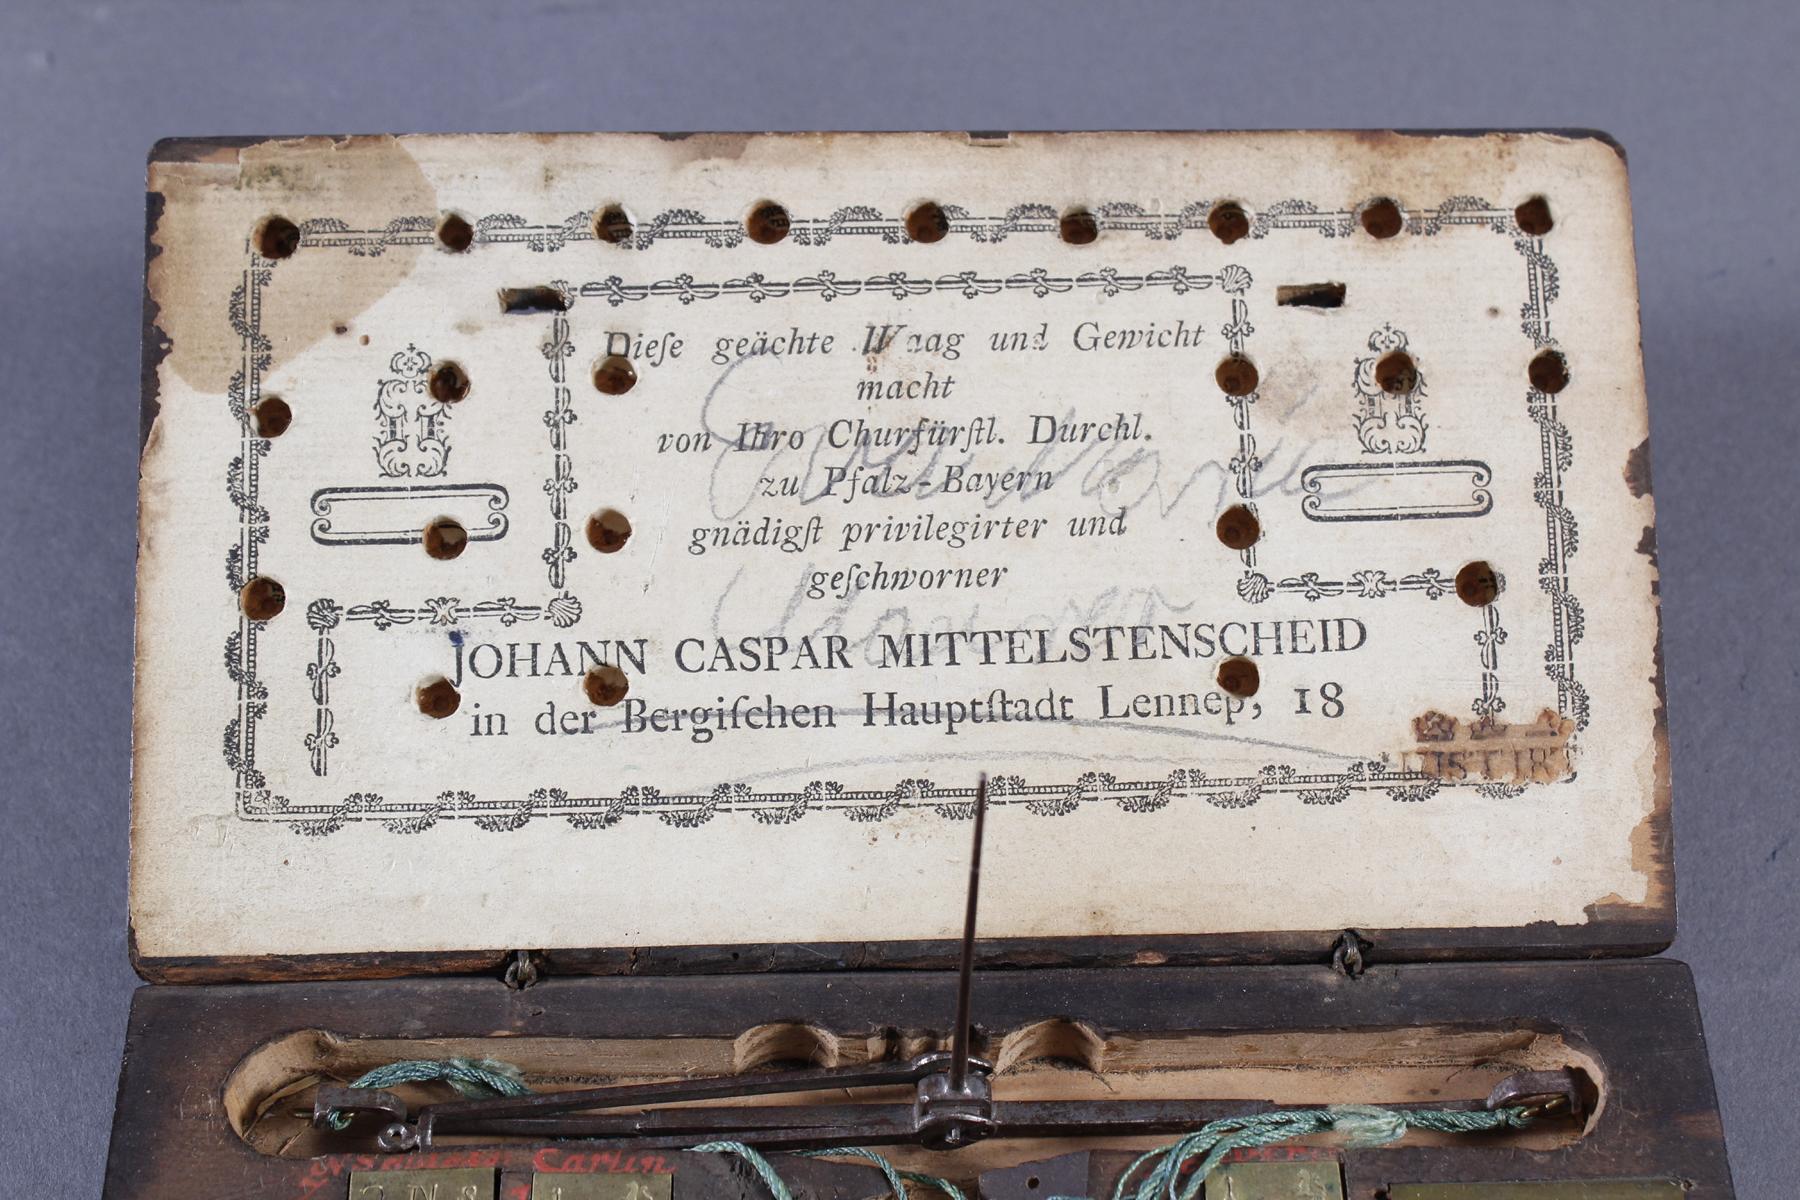 Dieſe geächte Waag und Gewicht
macht
von Ihro Churfürſtl. Durchl.
zu Pfalz-Bayern
gnädigſt privilegirter und
geſchworner
JOHANN CASPAR MITTELSTENSCHEID
in der Bergiſchen Hauptſtadt Lennep, 18
Carlin